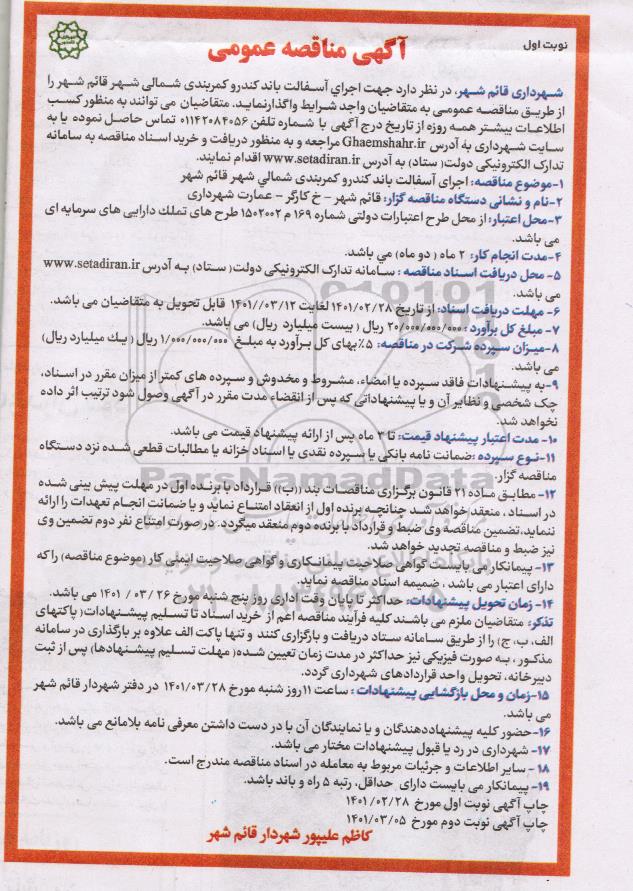 نوبت اول
آگهی مناقصه عمومی
شهرداری قائم شهر، در نظر دارد جهت اجرای آسفالت باند کندرو کمربندی شمالی شهر قائم شهر را
از طریق مناقصه عمومی به متقاضیان واجد شرایط واگذار نماید. متقاضیان می توانند به منظور کسب
اطلاعات بیشتر همه روزه از تاریخ درج آگهی با شماره تلفن ۰۱۱۴۲۰۸۴۰۵۶ تماس حاصل نموده یا به
سایت شهرداری به آدرس Ghaemshahr.ir مراجعه و به منظور دریافت و خرید اسناد مناقصه به سامانه
تدارک الکترونیکی دولت( ستاد) به آدرس www.setadiran.ir اقدام نمایند.
۱-موضوع مناقصه: اجرای آسفالت باند کندرو کمربندی شمالی شهر قائم شهر
۲-نام و نشانی دستگاه مناقصه گزار: قائم شهر - خ کارگر - عمارت شهرداری
۳-محل اعتبار: از محل طرح اعتبارات دولتی شماره ۱۶۹ م ۱۵۰۲۰۰۲ طرح های تملك دارایی های سرمایه ای
می باشد.
۴-مدت انجام کار: ۲ ماه ( دو ماه) می باشد.
۵- محل دریافت اسناد مناقصه : سامانه تدارک الکترونیکی دولت( ستاد) به آدرس www.setadiran.ir
می باشد.
۶- مهلت دریافت اسناد: از تاریخ ۱۴۰۱/۰۲/۲۸ لغایت ۱۴۰۱//۰۳/۱۲ قابل تحویل به متقاضیان می باشد.
۷- مبلغ کل برآورد : ۲۰/۰۰۰/۰۰۰/۰۰۰ ریال ( بیست میلیارد ریال) می باشد.
۸-میزان سپرده شرکت در مناقصه: ۵٪بهای کل برآورد به مبلغ ۱/۰۰۰/۰۰۰/۰۰۰ ریال ( یك میلیارد ریال)
می باشد.
۹-به پیشنهادات فاقد سپرده یا امضاء، مشروط و مخدوش و سپرده های کمتر از میزان مقرر در اسناد،
چک شخصی و نظایر آن و یا پیشنهاداتی که پس از انقضاء مدت مقرر در آگهی وصول شود ترتیب اثر داده
نخواهد شد.
۱۰- مدت اعتبار پیشنهاد قیمت: تا ۳ ماه پس از ارائه پیشنهاد قیمت می باشد.
۱۱-نوع سپرده :ضمانت نامه بانکی یا سپرده نقدی یا اسناد خزانه یا مطالبات قطعی شده نزد دستگاه
مناقصه گزار.
۱۲- مطابق ماده ۲۱ قانون برگزاری مناقصات بند ((ب)) قرارداد با برنده اول در مهلت پیش بینی شده
در اسناد ، منعقد خواهد شد چنانچه برنده اول از انعقاد امتناع نماید و یا ضمانت انجام تعهدات را ارائه
ننماید،تضمین مناقصه وی ضبط و قرارداد با برنده دوم منعقد میگردد. در صورت امتناع نفر دوم تضمین وی
نیز ضبط و مناقصه تجدید خواهد شد.
۱۳- پیمانکار می بایست گواهی صلاحیت پیمانکاری و گواهی صلاحیت ایمنی کار (موضوع مناقصه) را که
دارای اعتبار می باشد ، ضمیمه اسناد مناقصه نماید.
۱۴- زمان تحویل پیشنهادات: حداکثر تا پایان وقت اداری روز پنج شنبه مورخ ۲۶ /۰۳ / ۱۴۰۱ می باشد.
تذکر: متقاضیان ملزم می باشند کلیه فرآیند مناقصه اعم از خرید اسناد تا تسلیم پیشنهادات( پاکتهای
الف، ب، ج) را از طریق سامانه ستاد دریافت و بارگزاری کنند و تنها پاکت الف علاوه بر بارگذاری در سامانه
مذکور ، به صورت فیزیکی نیز حداکثر در مدت زمان تعیین شده( مهلت تسلیم پیشنهادها) پس از ثبت
دبیرخانه، تحویل واحد قراردادهای شهرداری گردد.
۱۵-زمان و محل بازگشایی پیشنهادات : ساعت ۱۱روز شنبه مورخ ۱۴۰۱/۰۳/۲۸ در دفتر شهردار قائم شهر
می باشد.
۱۶-حضور کلیه پیشنهاددهندگان و یا نمایندگان آن با در دست داشتن معرفی نامه بلامانع می باشد.
۱۷- شهرداری در رد یا قبول پیشنهادات مختار می باشد.
۱۸ - سایر اطلاعات و جزئیات مربوط به معامله در اسناد مناقصه مندرج است.
۱۹- پیمانکار می بایست دارای حداقل، رتبه ۵ راه و باند باشد.
چاپ آگهی نوبت اول مورخ ۱۴۰۱/۰۲/۲۸
چاپ آگهی نوبت دوم مورخ ۱۴۰۱/۰۳/۰۵
کاظم علیپور شهردار قائم شهر
ParsNamadData